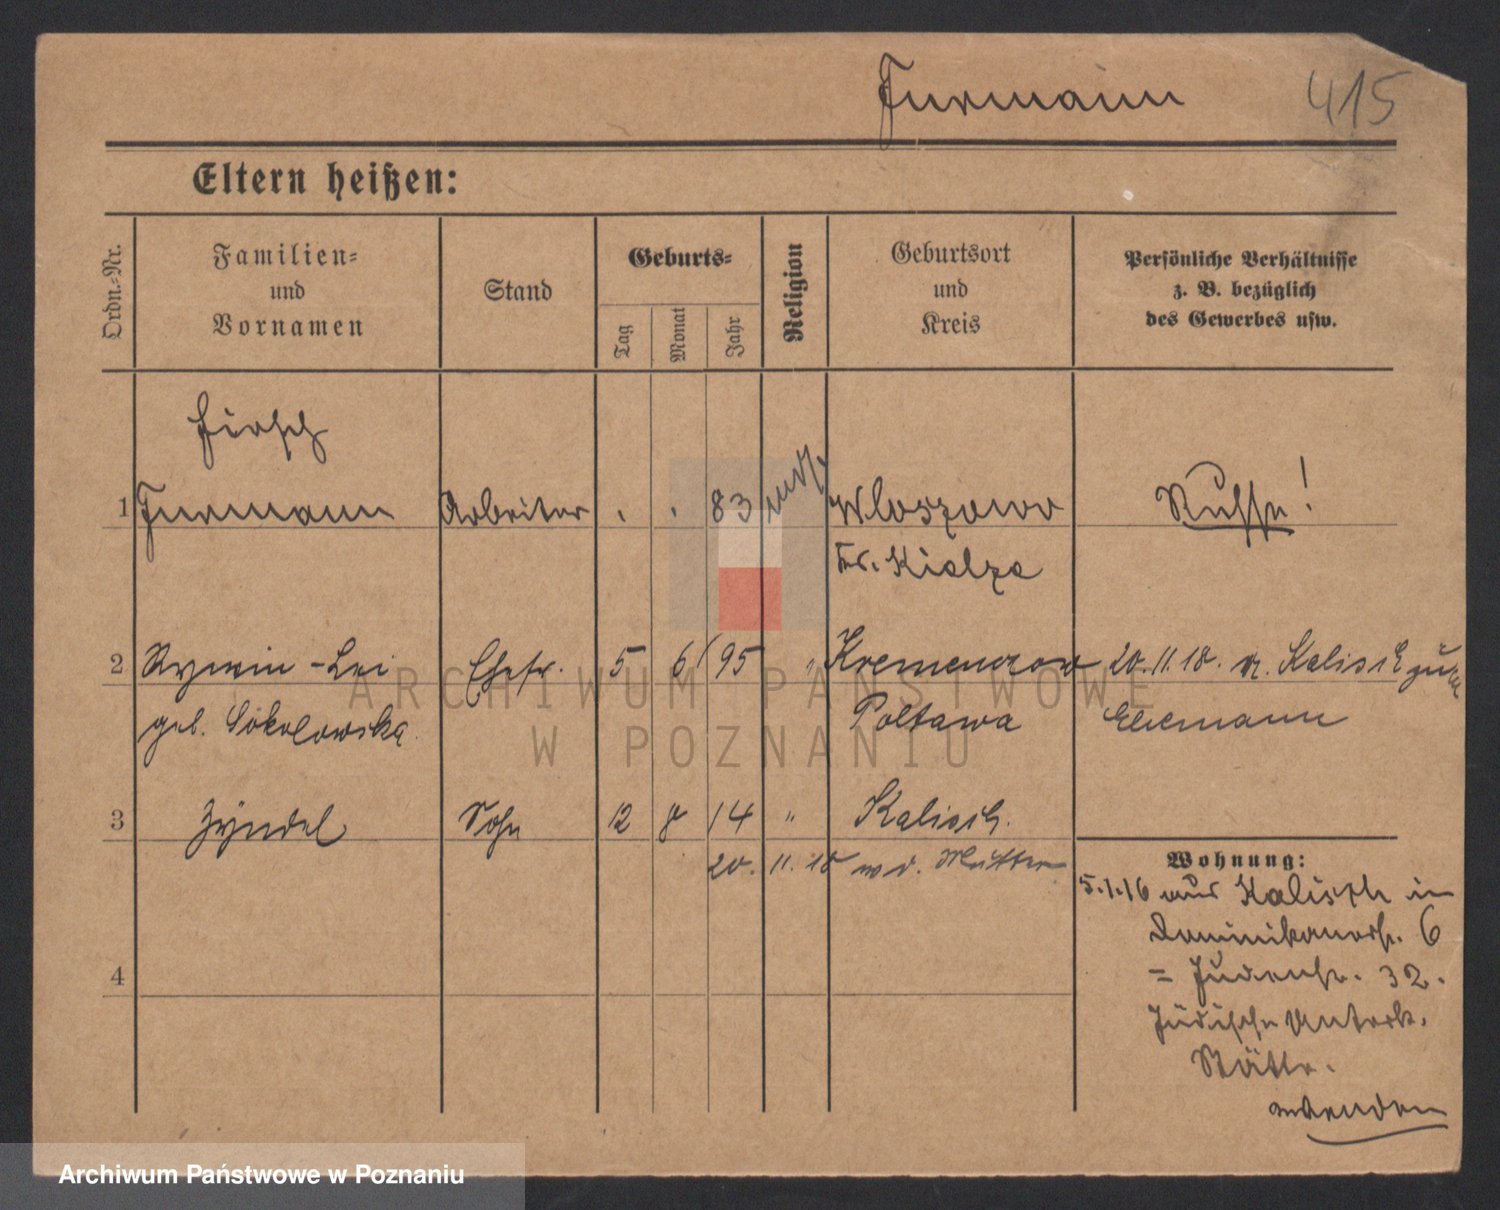 Furmann 415
Eltern heißen:
Ordn.-Nr.
Familien-
und
Vornamen
Stand
Geburts-
Tag
Monat
Jahr
Religion
Geburtsort
und
Kreis
Persönliche Verhältnisse
z. B. bezüglich
des Gewerbes usw.
Hirsch
1 Furmann Arbeiter . . 83 Wloszowo Russe!
Kr. Kielze
2 -Lei Ehefr. 5 6 95 " Krementzow 20.11.18. v. Kalisch zum
geb. Sokolowska Poltawa Ehemann
3 Zyndel Sohn 12 8 14 " Kalisch.
20. 11. 18 w d. Mutter
Wohnung:
5.1.16 aus Kalisch in
Dominikanerstr. 6
= Judenstr. 32.
Jüdische Unterk.
Stätte.
wenden
4
ARCHIWUM PAŃSTWOWE
W POZNANIU
Archiwum Państwowe w Poznaniu